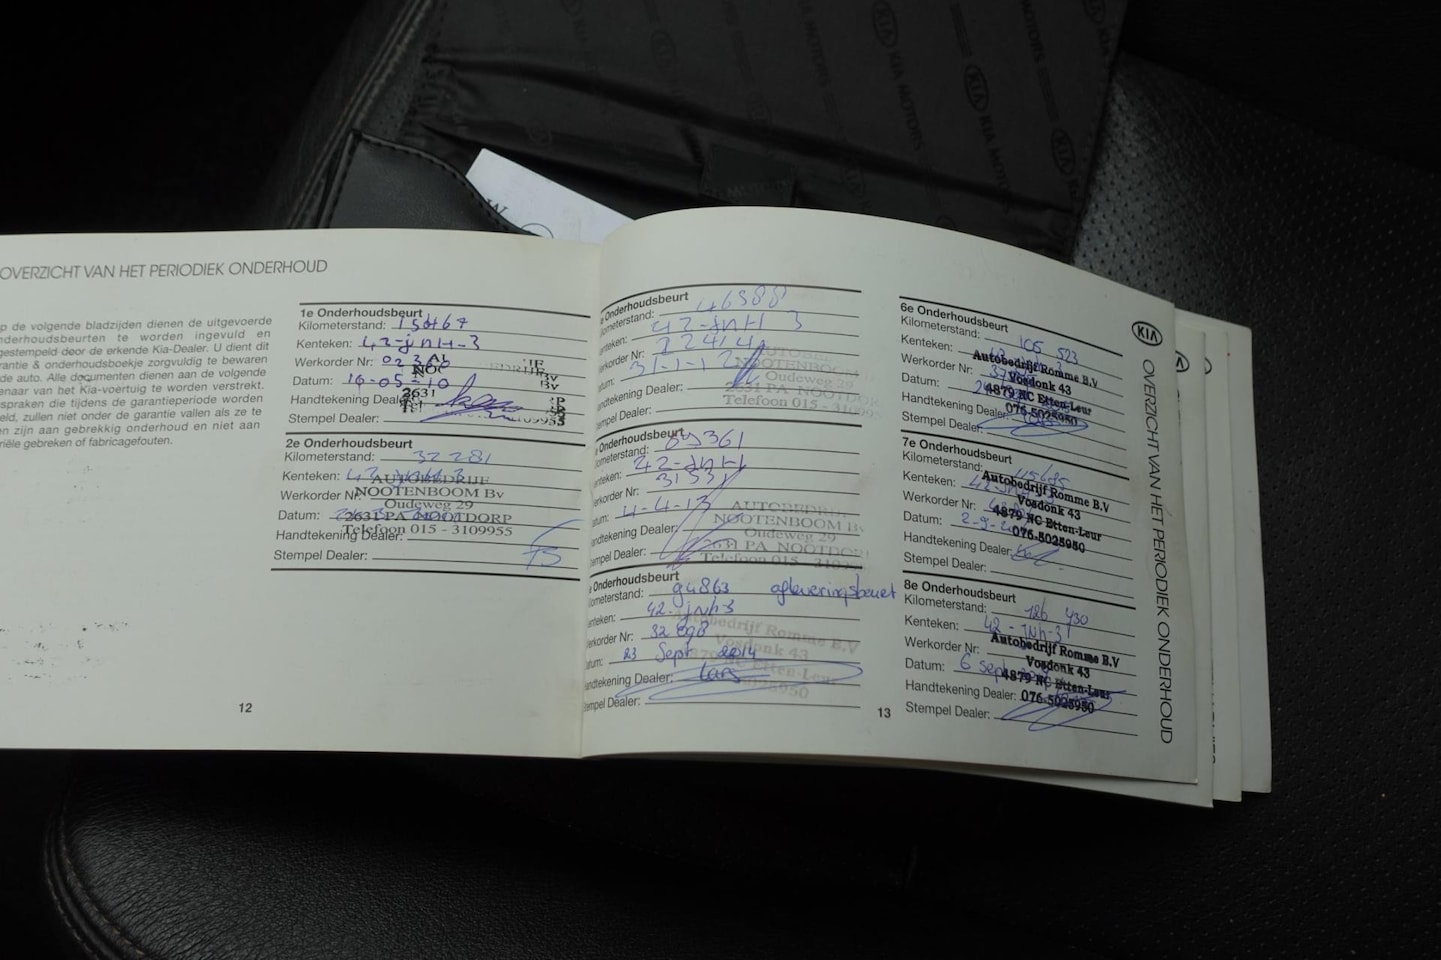 OVERZICHT VAN HET PERIODIEK ONDERHOUD
p de volgende bladzijden dienen de uitgevoerde
nderhoudsbeurten te worden ingevuld en
gestempeld door de erkende Kia-Dealer. U dient dit
rantie & onderhoudsboekje zorgvuldig te bewaren
de auto. Alle documenten dienen aan de volgende
enaar van het Kia-voertuig te worden verstrekt.
spraken die tijdens de garantieperiode worden
eld, zullen niet onder de garantie vallen als ze te
en zijn aan gebrekkig onderhoud en niet aan
riële gebreken of fabricagefouten.
12
1e Onderhoudsbeurt
Kilometerstand: 15467
Kenteken: 42-JNH-3
Werkorder Nr:
Datum: 19-05-10
Handtekening Dealer:
Stempel Dealer:
2e Onderhoudsbeurt
Kilometerstand: 32281
Kenteken:
Werkorder Nr:
Datum:
Handtekening Dealer:
Stempel Dealer:
AUTOBEDRIJF
NOOTENBOOM Bv
Oudeweg 29
2631 PA NOOTDORP
Telefoon 015 - 3109955
Onderhoudsbeurt
ometerstand: 46988
enteken: 42-JNH 3
erkorder Nr: 22414
atum: 31-1-12
andtekening Dealer:
tempel Dealer:
AUTOBEDRI
NOOTENBOOM
Oudeweg 29
2631 PA NOOTDOR
Telefoon 015 - 310995
Onderhoudsbeurt
ometerstand: 69361
enteken: 42-JNH
erkorder Nr: 31531
atum: 4-4-13
andtekening Dealer:
tempel Dealer:
AUTOBEDRIJ
NOOTENBOOM Bv
Oudeweg 29
2631 PA NOOTDOR
Telefoon 015 - 3109
Onderhoudsbeurt
ometerstand: 94863 afleveringsbeurt
enteken: 42-JNH-3
erkorder Nr: 32 898
atum: 23 Sept 2014
andtekening Dealer: Lars
tempel Dealer:
Autobedrijf Romme B.V
Vosdonk 43
4879 NC Etten-Leur
076-5025950
13
6e Onderhoudsbeurt
Kilometerstand: 105 523
Kenteken:
Werkorder Nr:
Datum:
Handtekening Dealer:
Stempel Dealer:
Autobedrijf Romme B.V
Vosdonk 43
4879 NC Etten-Leur
076-5025950
7e Onderhoudsbeurt
Kilometerstand:
Kenteken:
Werkorder Nr:
Datum:
Handtekening Dealer:
Stempel Dealer:
Autobedrijf Romme B.V
Vosdonk 43
4879 NC Etten-Leur
076-5025950
8e Onderhoudsbeurt
Kilometerstand: 126 430
Kenteken: 42-JNH-3
Werkorder Nr:
Datum: 6 sept
Handtekening Dealer:
Stempel Dealer:
Autobedrijf Romme B.V
Vosdonk 43
4879 NC Etten-Leur
076-5025950
KIA
OVERZICHT VAN HET PERIODIEK ONDERHOUD
KIA MOTORS